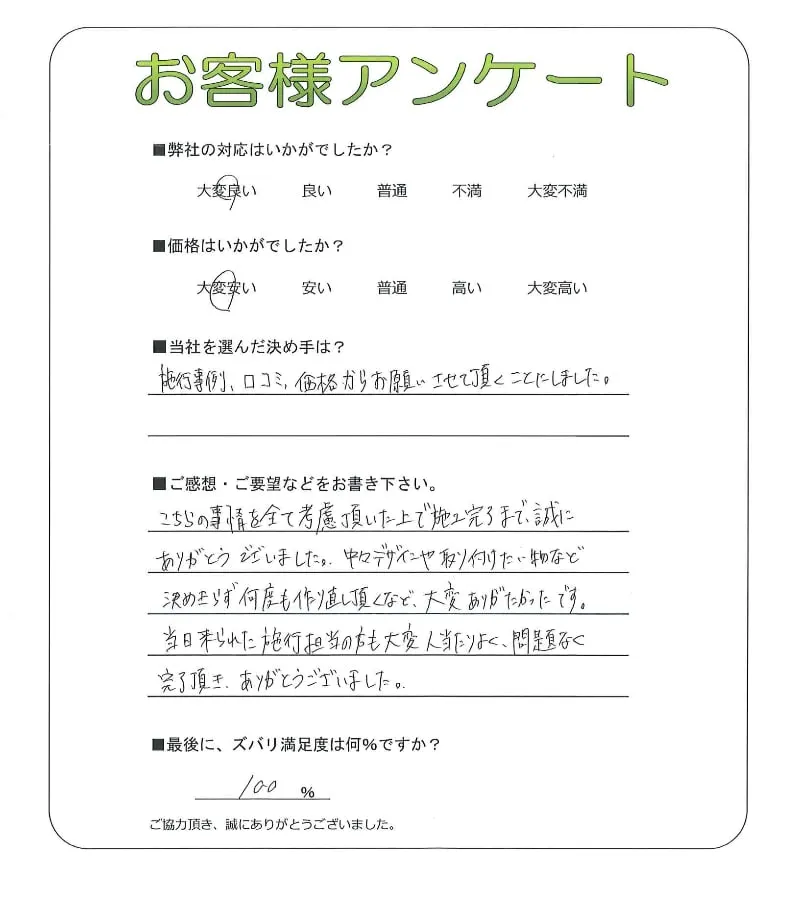 お客様アンケート
■弊社の対応はいかがでしたか？
大変良い 良い 普通 不満 大変不満
■価格はいかがでしたか？
大変安い 安い 普通 高い 大変高い
■当社を選んだ決め手は？
施行事例、口コミ、価格からお願いさせて頂くことにしました。
■ご感想・ご要望などをお書き下さい。
こちらの事情を全て考慮頂いた上で施工完了まで、誠に
ありがとうございました。中々デザインや取り付けたい物など
決めきらず何度も作り直し頂くなど、大変ありがたかったです。
当日来られた施行担当の方も大変人当たりよく、問題なく
完了頂き、ありがとうございました。
■最後に、ズバリ満足度は何％ですか？
100 %
ご協力頂き、誠にありがとうございました。